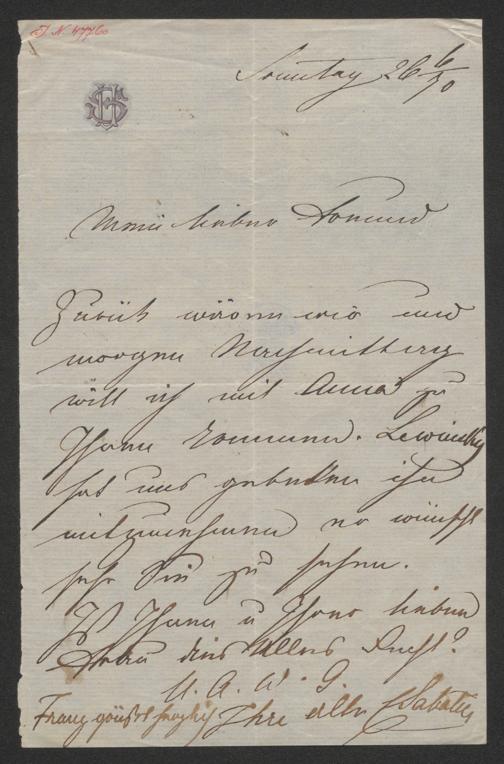 I. N. 47760
Sonntag 26 6/70
Mein lieber Freund
Zurück wären wir und
morgen Nachmittag
will ich mit Anna zu
Ihnen kommen. Lewinsky
hat uns gebeten ihn
mitzunehmen er wünscht
sehr Sie zu sehen.
Ist Ihnen u Ihrer lieben
Frau dies Alles Recht?
U. A. W. G.
Franz grüßt herzlich Ihre alte CSabatier